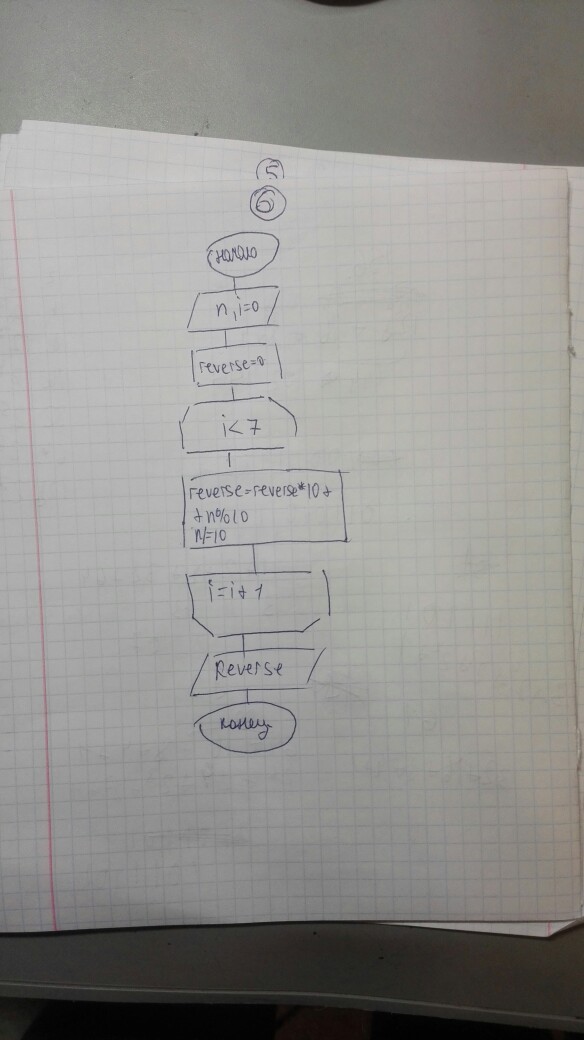 5
6
начало
n, i=0
reverse=0
i<7
reverse=reverse*10+
+n%10
n/=10
i=i+1
Reverse
конец